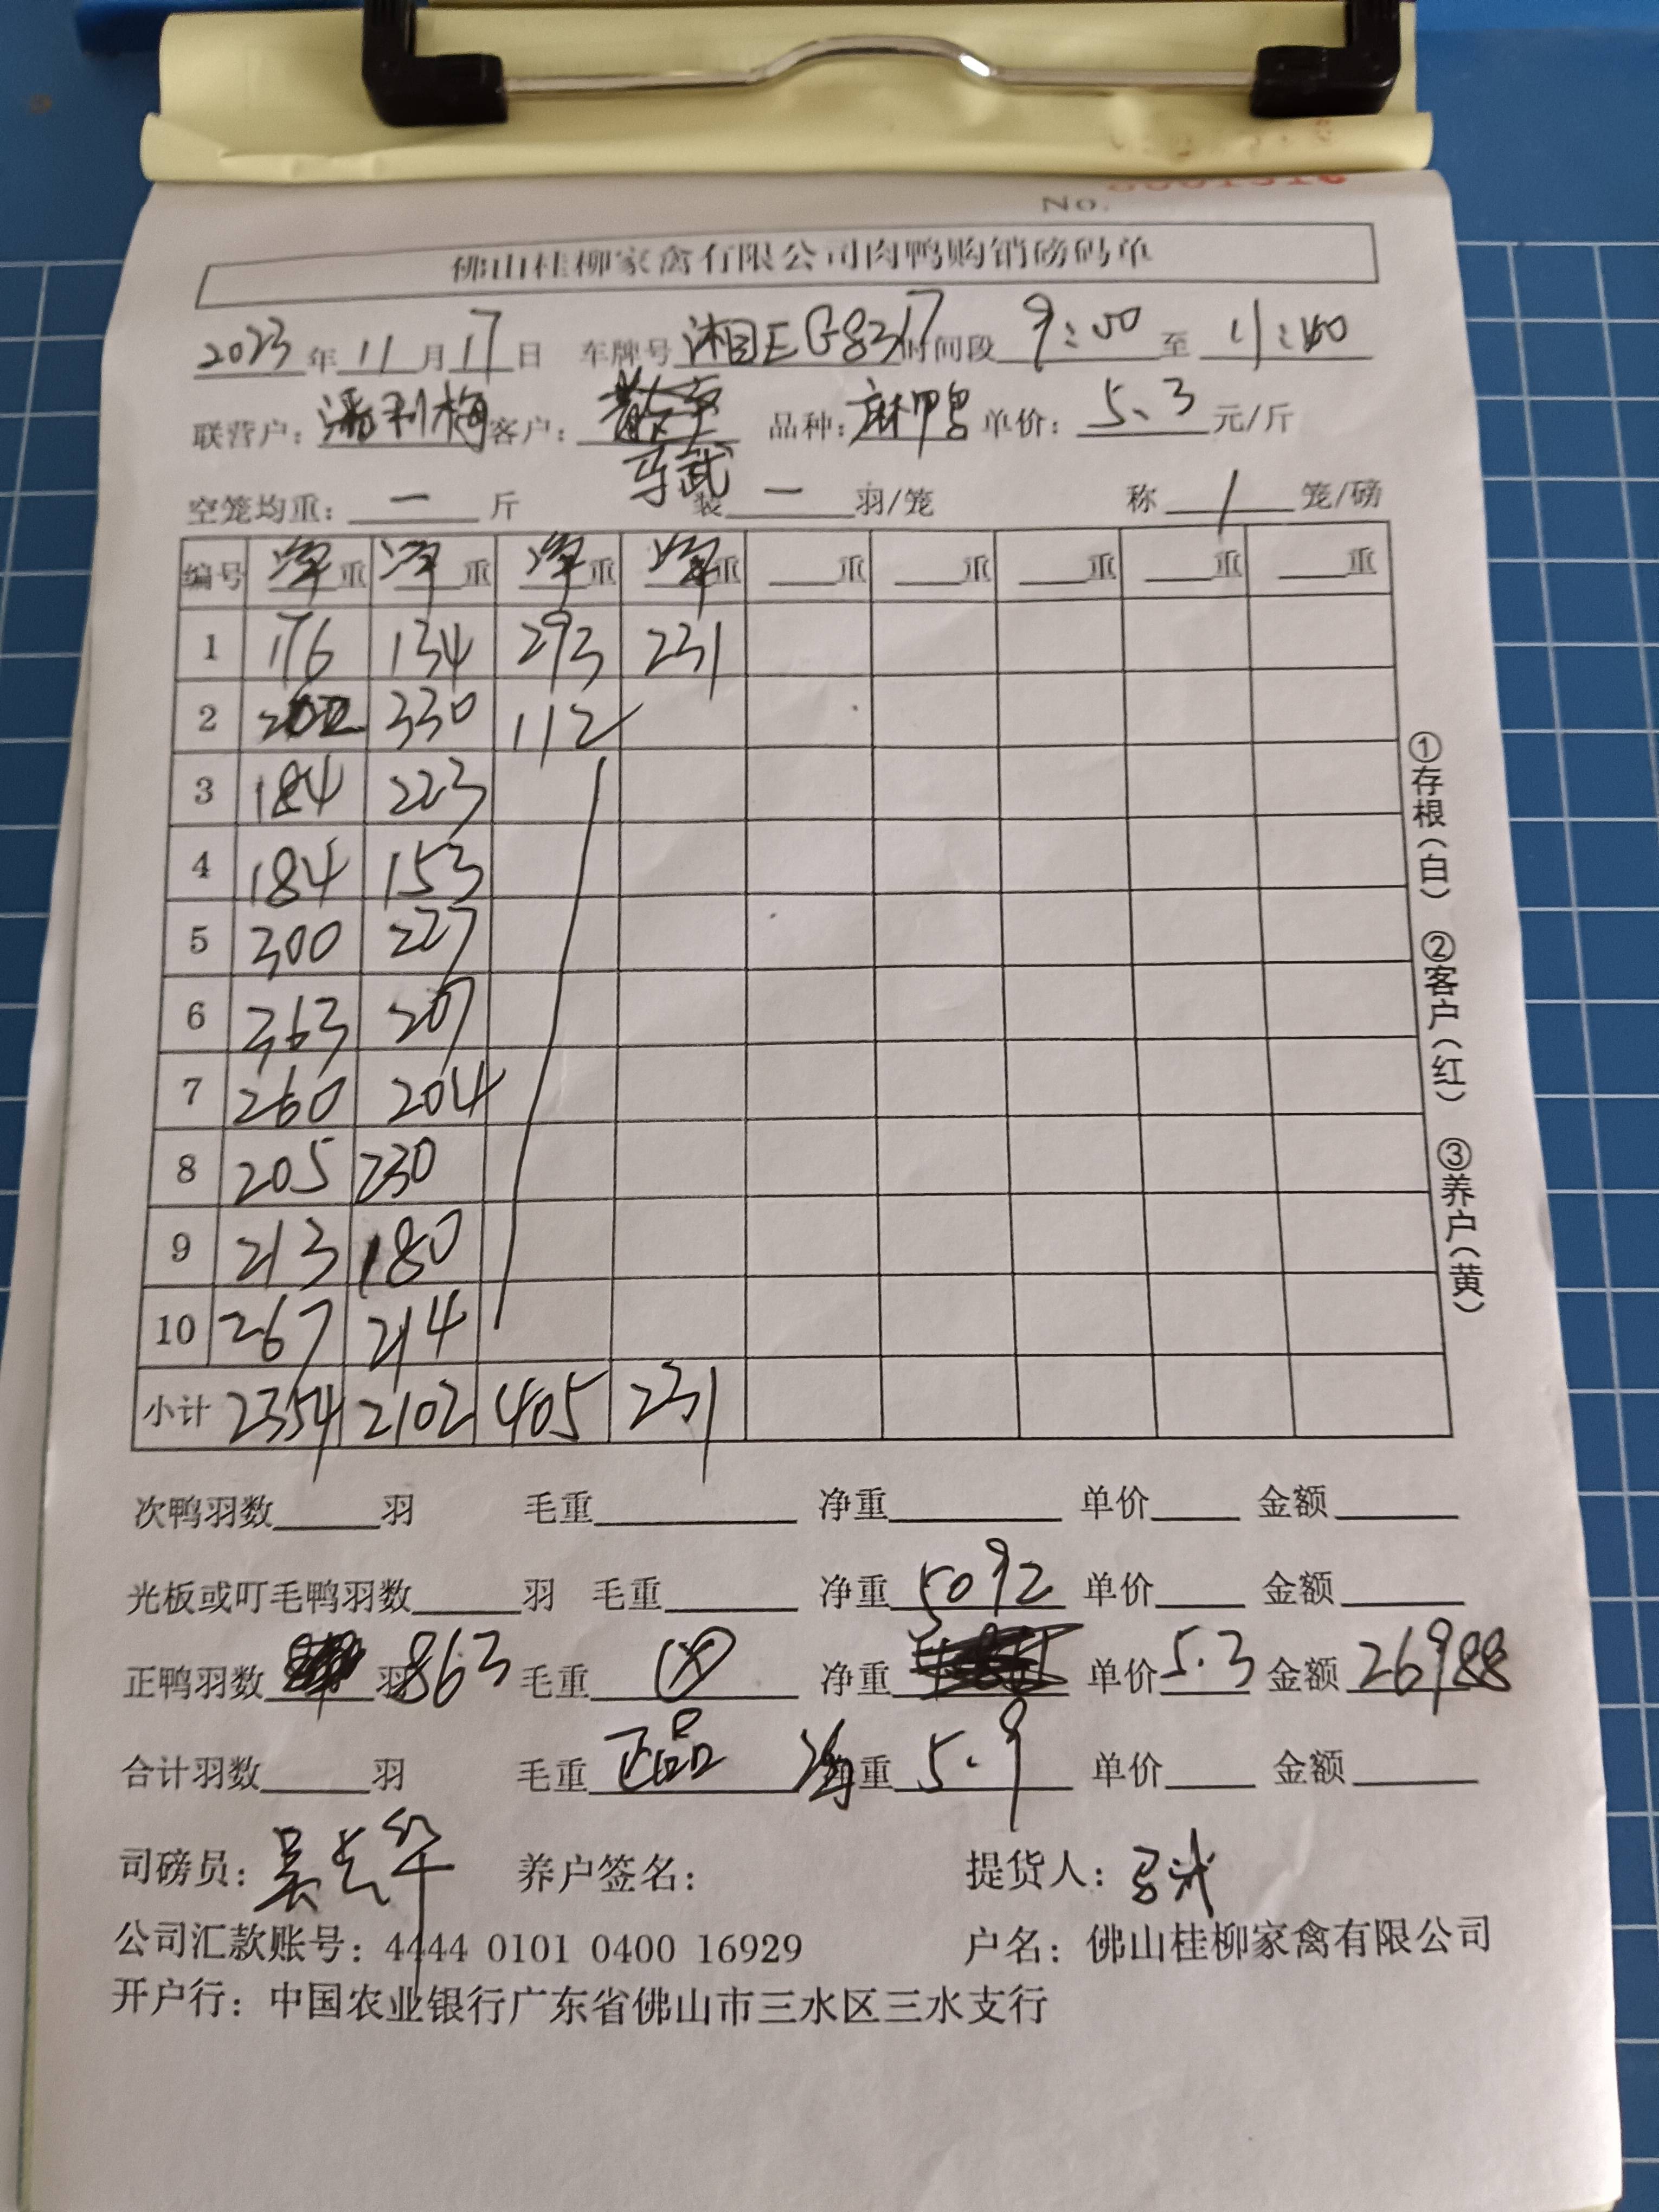 No.
佛山桂柳家禽有限公司肉鸭购销磅码单
2023年11月17日 车牌号湘EG8317时间段9:00至11:40
联营户：潘利梅客户： 品种：麻鸭单价：5.3元/斤
马武
空笼均重：一斤 装一羽/笼 称1笼/磅
编号 净重 净重 净重 净重 重 重 重 重 重
1 176 134 293 231
2 202 330 112
3 184 223
4 184 153
5 300 227
6 363 207
7 260 204
8 205 230
9 213 180
10 267 214
小计 2354 2102 405 231
次鸭羽数 羽 毛重 净重 单价 金额
光板或叮毛鸭羽数 羽 毛重 净重5092 单价 金额
正鸭羽数 羽863 毛重 净重 单价5.3 金额26988
合计羽数 羽 毛重正品 均重5.9 单价 金额
司磅员：吴 华 养户签名： 提货人：马武
公司汇款账号：4444 0101 0400 16929 户名：佛山桂柳家禽有限公司
开户行：中国农业银行广东省佛山市三水区三水支行
①存根（白） ②客户（红） ③养户（黄）